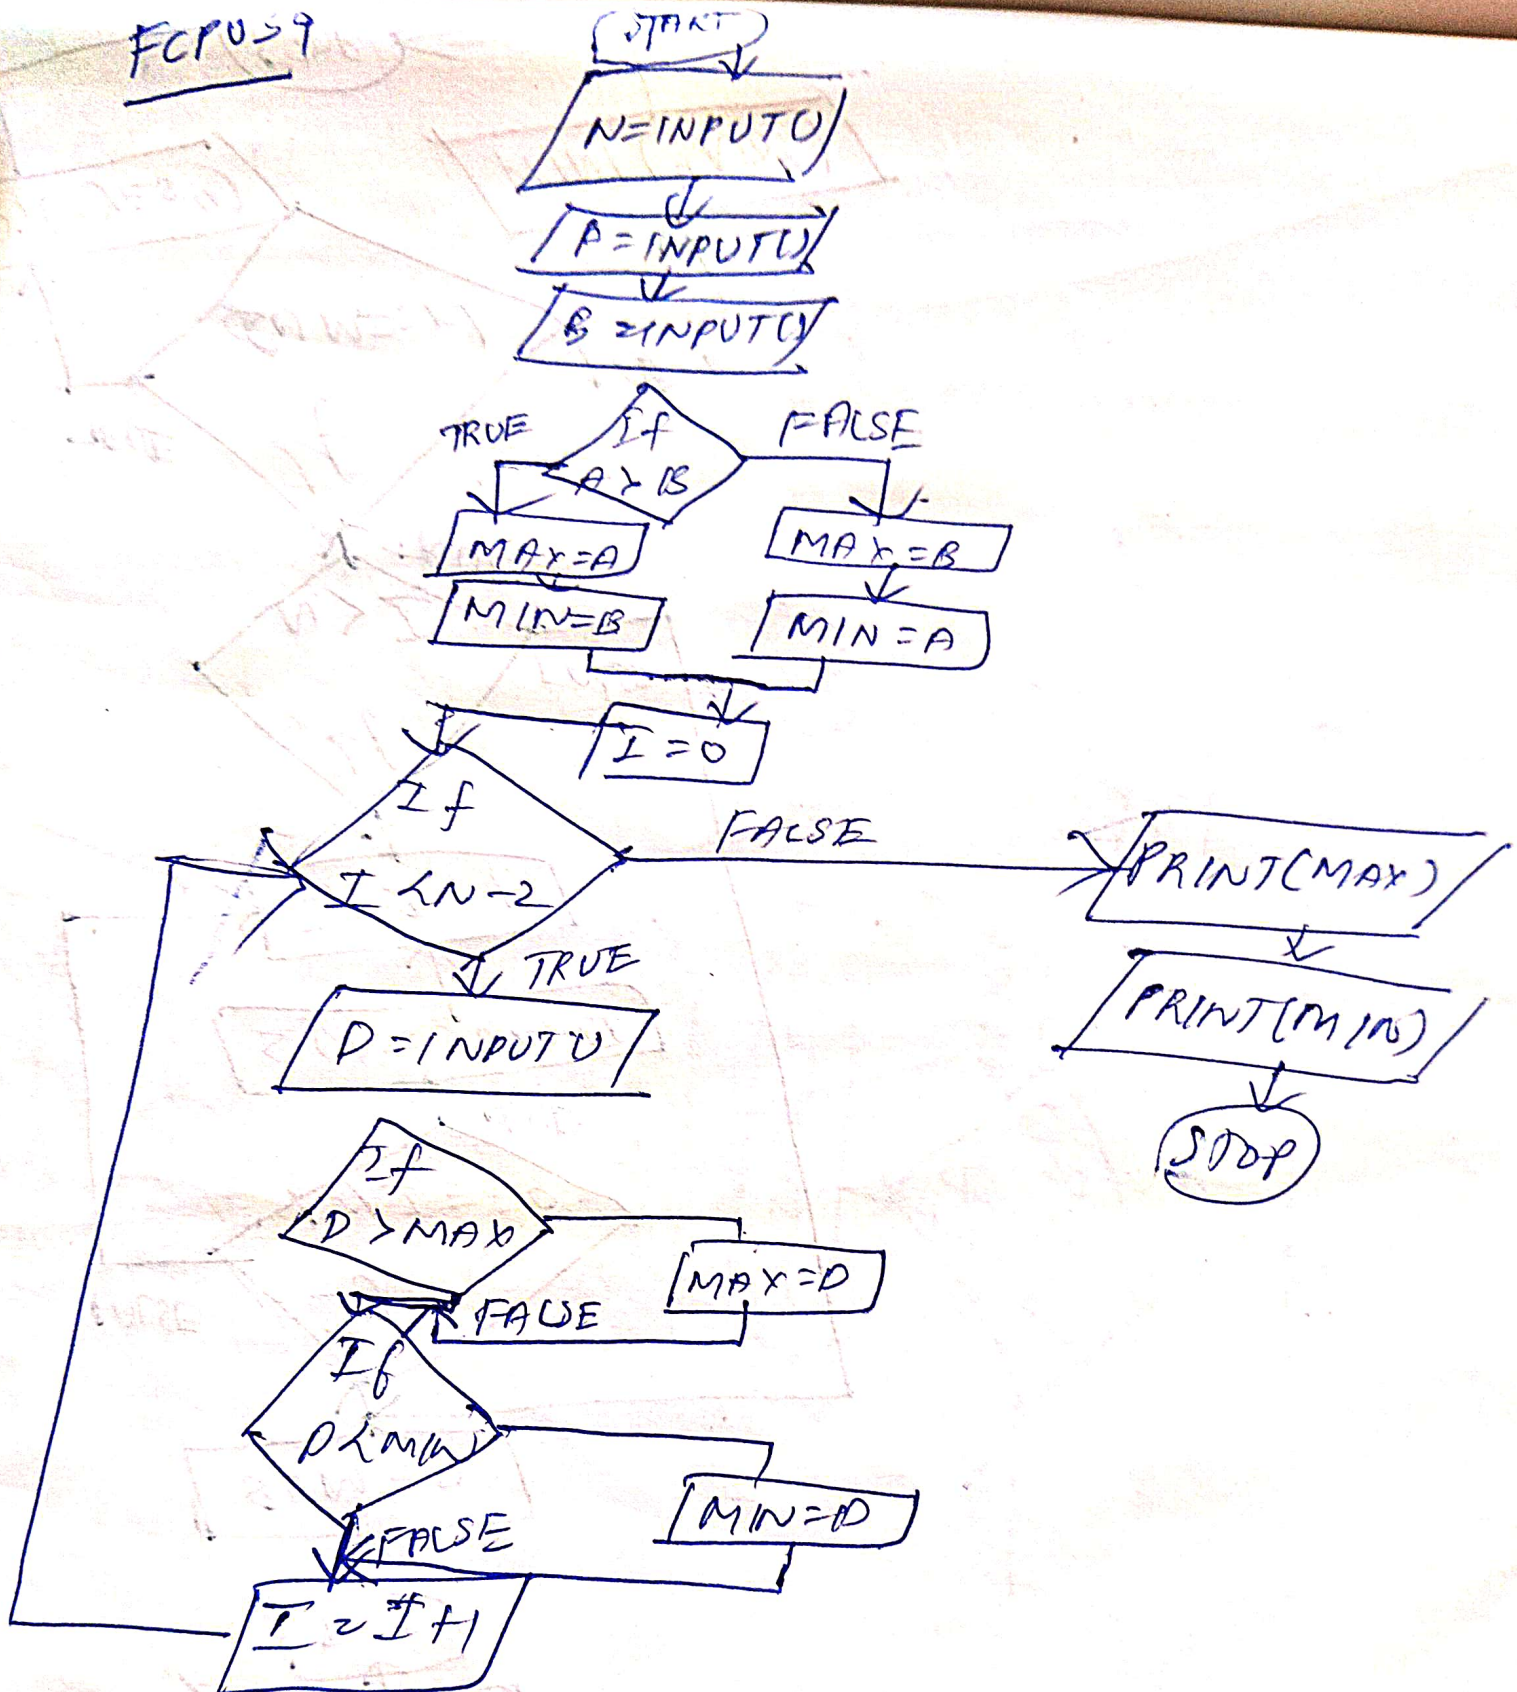 FCPU59
START
N=INPUT()
A=INPUT()
B=INPUT()
If
A>B
TRUE
FALSE
MAX=A
MIN=B
MAX=B
MIN=A
I=0
If
I<N-2
FALSE
PRINT(MAX)
PRINT(MIN)
STOP
TRUE
D=INPUT()
If
D>MAX
MAX=D
FALSE
If
D<MIN
MIN=D
FALSE
I=I+1